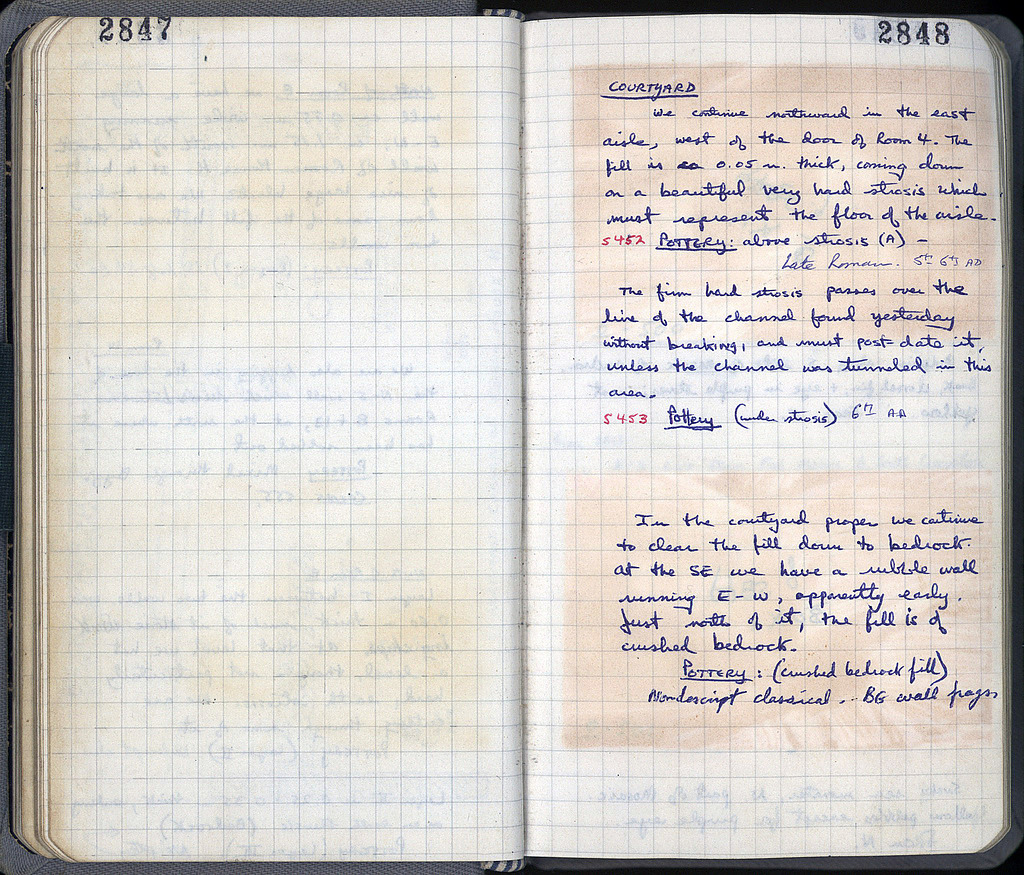 2847
2848
COURTYARD
We continue northward in the east
aisle, west of the door of Room 4. The
fill is 0.05 m. thick, coming down
on a beautiful very hard strosis which
must represent the floor of the aisle.
S452 POTTERY: above strosis (A) –
Late Roman. 5th 6th AD
The firm hard strosis passes over the
line of the channel found yesterday
without breaking, and must post-date it,
unless the channel was tunneled in this
area.
S453 Pottery (under strosis) 6th AD
In the courtyard proper we continue
to clear the fill down to bedrock.
At the SE we have a rubble wall
running E-W, apparently early.
Just north of it, the fill is of
crushed bedrock.
POTTERY: (crushed bedrock fill)
Nondescript classical.. BG wall frags